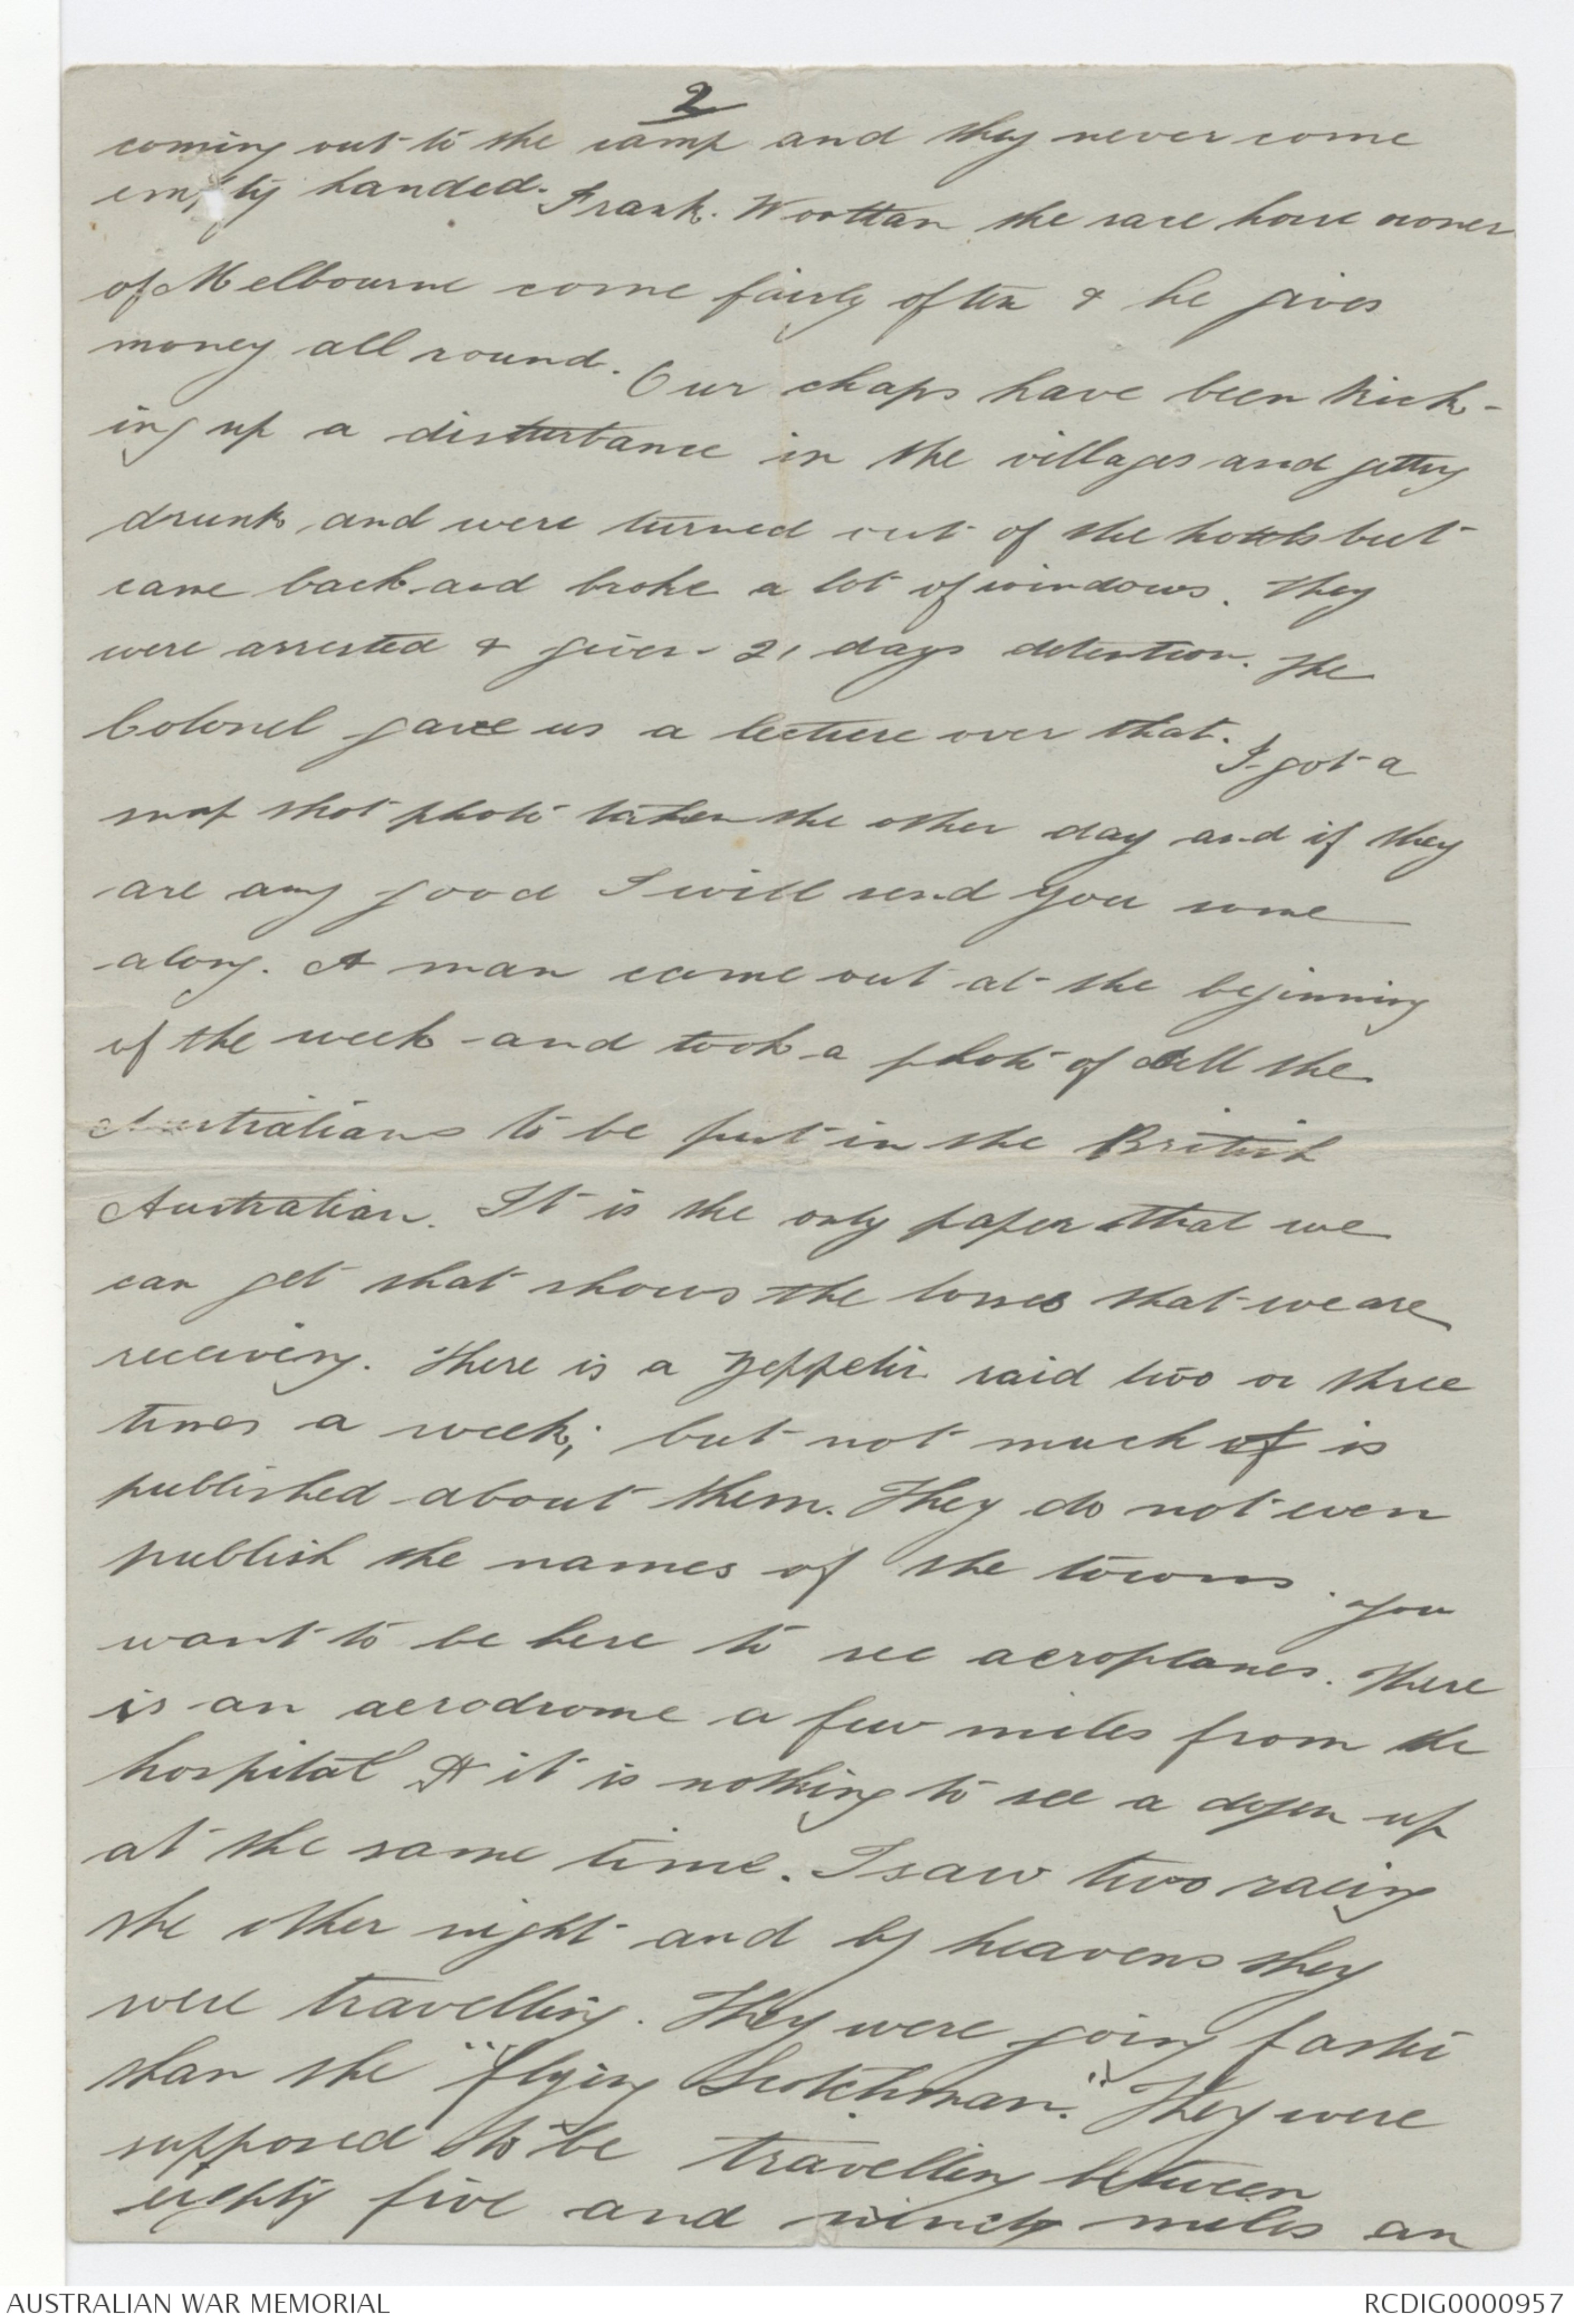 2
coming out to the camp and they never come
empty handed. Frank. Woottan the race horse owner
of Melbourne come fairly often & he gives
money all round. Our chaps have been kick-
ing up a disturbance in the villages and getting
drunk and were turned out of the hotels but
came back and broke a lot of windows. They
were arrested & given 21 days detention. The
Colonel gave us a lecture over that. I got a
snap shot photo taken the other day and if they
are any good I will send you some
along. A man came out at the beginning
of the week and took a photo of all the
Australians to be put in the British
Australian. It is the only paper that we
can get that shows the losses that we are
receiving. There is a Zeppelin raid two or three
times a week; but not much of is
published about them. They do not even
publish the names of the towns. You
want to be here to see aeroplanes. There
is an aerodrome a few miles from the
hospital & it is nothing to see a dozen up
at the same time. I saw two racing
the other night and by heavens they
were travelling. They were going faster
than the "flying Scotchman." They were
supposed to be travelling between
eighty five and ninety miles an
AUSTRALIAN WAR MEMORIAL
RCDIG0000957